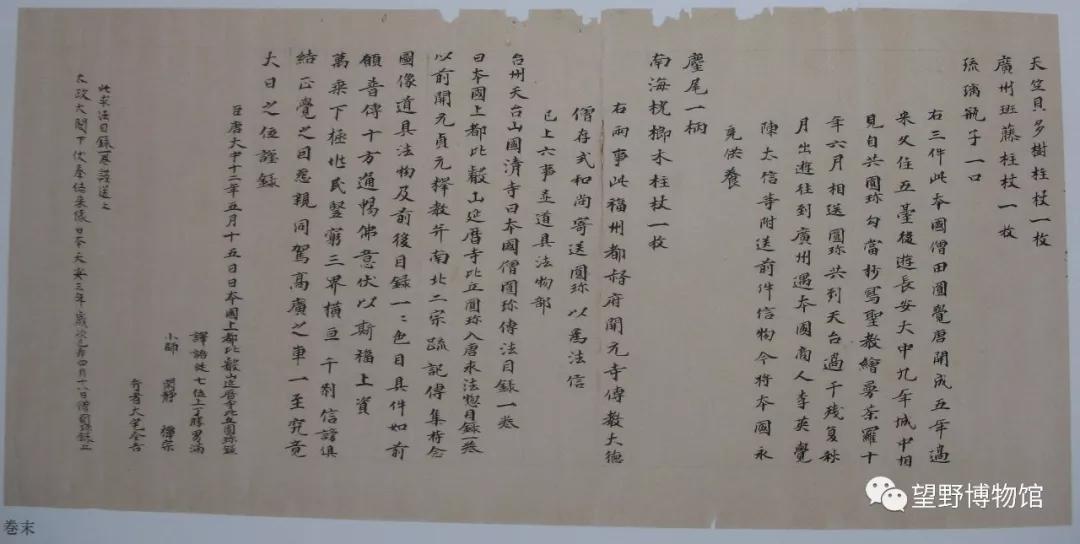 天竺貝多樹柱杖一枚
廣州班藤柱杖一枚
琉璃瓶子一口
右三件此本國僧田圓覺唐開成五年過
來久住五臺後遊長安大中九年城中相
見自共圓珍勾當抄寫聖教繪曼荼羅十
年六月相送圓珍共到天台過千殘夏秋
月出遊往到廣州遇本國商人李英覺
陳太信等附送前件信物今將本國永
充供養
麈尾一柄
南海桄榔木柱杖一枚
右兩事此福州都督府開元寺傳教大德
僧存式和尚寄送圓珍以爲法信
已上六事並道具法物部
台州天台山國清寺日本國僧圓珍傳法目録一卷
日本國上都比叡山延暦寺比丘圓珍入唐求法惣目録一卷
以前開元貞元釋教并南北二宗疏記傳集梵
圖像道具法物及前後目録一々色目具件如前
願普傳十方通暢佛意伏以斯福上資
萬乗下極兆民豎窮三界横亘十刹信謗俱
結正覺之因怨親同駕高廣之車一至究竟
大日之位謹録
巨唐大中十二年五月十五日日本國上都比叡山延暦寺比丘圓珍録
譯語従七位上丁勝男滿
小師 閑靜 禪宗
行者大宅全吉
此求法目録一卷謹送上
太政大閤下伏奉 日本天安三年歳次己卯四月十八日僧圓珍録上
卷末
望野博物馆